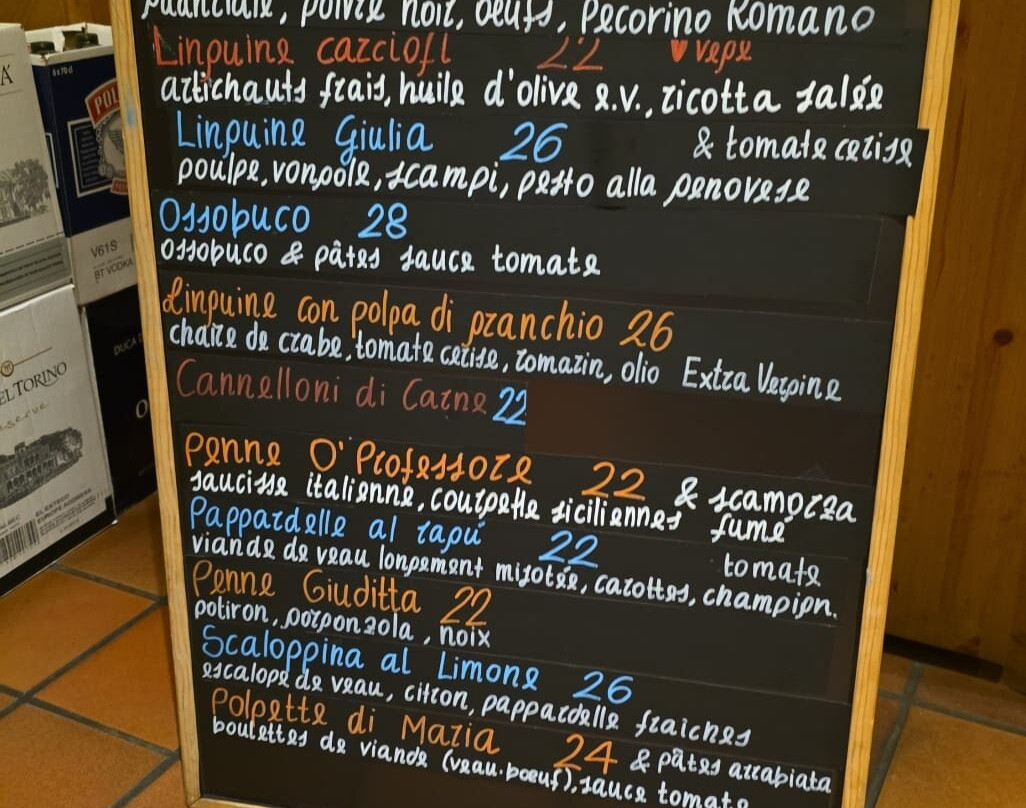 Guanciale, poivre noir, oeufs, Pecorino Romano
Linguine carciofi 22 ♥ vege
artichauts frais, huile d'olive e.v., ricotta salée
& tomate cerise
Linguine Giulia 26
poulpe, vongole, scampi, pesto alla genovese
Ossobuco 28
ossobuco & pâtes sauce tomate
Linguine con polpa di granchio 26
chaire de crabe, tomate cerise, romarin, olio Extra Vergine
Cannelloni di Carne 22
Penne O' Professore 22 & scamorza
saucisse italienne, courgette siciliennes fumé
Pappardelle al ragú 22 tomate
viande de veau longement mijotée, carottes, champign.
Penne Giuditta 22
potiron, gorgonzola, noix
Scaloppina al Limone 26
escalope de veau, citron, pappardelle fraiches
Polpette di Maria 24 & pâtes arrabiata
boulettes de viande (veau-boeuf), sauce tomate
6x70cl
POL
V61S
BT VODKA
DUCA
EL TORINO